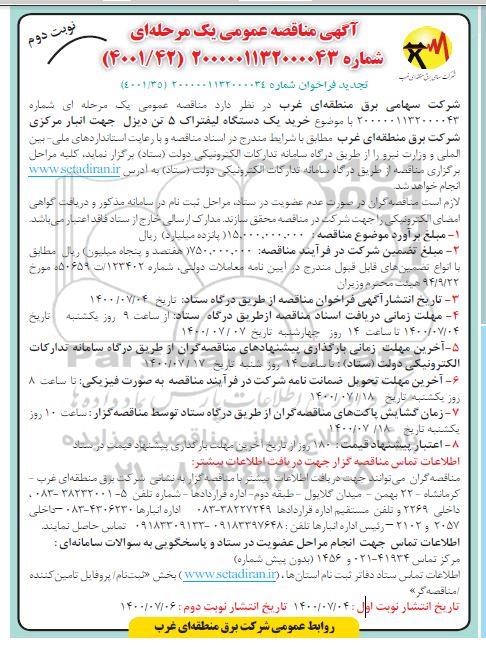 نوبت دوم
آگهی مناقصه عمومی یک مرحله‌ای
شماره ۲۰۰۰۰۰۱۱۳۲۰۰۰۰۴۳ (۴۰۰۱/۴۲)
تجدید فراخوان شماره ۲۰۰۰۰۰۱۱۳۲۰۰۰۰۳۴ (۴۰۰۱/۳۵)
شرکت سهامی برق منطقه‌ای غرب
شرکت سهامی برق منطقه‌ای غرب در نظر دارد مناقصه عمومی یک مرحله ای شماره
۲۰۰۰۰۰۱۱۳۲۰۰۰۰۴۳ با موضوع خرید یک دستگاه لیفتراک ۵ تن دیزل جهت انبار مرکزی
شرکت برق منطقه‌ای غرب مطابق با شرایط مندرج در اسناد مناقصه و با رعایت استانداردهای ملی- بین
المللی و وزارت نیرو را از طریق درگاه سامانه تدارکات الکترونیکی دولت (ستاد) برگزار نماید، کلیه مراحل
برگزاری مناقصه از طریق درگاه سامانه تدارکات الکترونیکی دولت (ستاد) به آدرس www.setadiran.ir
انجام خواهد شد.
لازم است مناقصه گران در صورت عدم عضویت در ستاد، مراحل ثبت نام در سامانه مذکور و دریافت گواهی
امضای الکترونیکی را جهت شرکت در مناقصه محقق سازند. مدارک ارسالی خارج از ستاد فاقد اعتبار می‌باشد.
۱- مبلغ برآورد موضوع مناقصه : ۱۵,۰۰۰,۰۰۰,۰۰۰ (پانزده میلیارد) ریال
۲- مبلغ تضمین شرکت در فرآیند مناقصه: ۷۵۰,۰۰۰,۰۰۰ ( هفتصد و پنجاه میلیون) ریال مطابق
با انواع تضمین‌های قابل قبول مندرج در آیین نامه معاملات دولتی، شماره ۱۲۳۴۰۲/ت ۵۰۶۵۹ه مورخ
۹۴/۹/۲۲ هیئت محترم وزیران
۳- تاریخ انتشار آگهی فراخوان مناقصه از طریق درگاه ستاد: تاریخ ۱۴۰۰/۰۷/۰۴
۴- مهلت زمانی دریافت اسناد مناقصه ازطریق درگاه ستاد: از ساعت ۹ روز یکشنبه تاریخ
۱۴۰۰/۰۷/۰۴ تا ساعت ۱۴ روز چهارشنبه تاریخ ۱۴۰۰/۰۷/۰۷
۵-آخرین مهلت زمانی بارگذاری پیشنهادهای مناقصه‌گران از طریق درگاه سامانه تدارکات
الکترونیکی دولت (ستاد) : تا ساعت ۱۴ روز شنبه تاریخ ۱۴۰۰/۰۷/۱۷
۶- آخرین مهلت تحویل ضمانت نامه شرکت در فرآیند مناقصه به صورت فیزیکی: تا ساعت ۸
روز یکشنبه تاریخ ۱۴۰۰/۰۷/۱۸
۷- زمان گشایش پاکت‌های مناقصه‌گران از طریق درگاه ستاد توسط مناقصه‌گزار: ساعت ۱۰ روز
یکشنبه تاریخ ۱۴۰۰/۰۷/۱۸
۸- اعتبار پیشنهاد قیمت: ۱۸۰ روز از تاریخ آخرین مهلت بارگذاری پیشنهاد قیمت در ستاد
اطلاعات تماس مناقصه گزار جهت دریافت اطلاعات بیشتر:
مناقصه گران می‌توانند جهت دریافت اطلاعات بیشتر با مناقصه گزار به نشانی شرکت برق منطقه‌ای غرب -
کرمانشاه - ۲۲ بهمن - میدان گلایول - طبقه دوم- اداره قراردادها - شماره تلفن ۵-۳۸۲۳۲۰۰۱-۰۸۳ ،
داخلی ۲۲۶۹ و تلفن مستقیم اداره قراردادها ۳۸۲۲۷۲۴۹-۰۸۳ اداره انبارها ۴۳۰۶۲۳۰-۰۸۳ –داخلی
۲۰۵۷ و ۲۱۰۲ – رئیس اداره انبارها تلفن : ۰۹۱۸۳۳۹۷۶۴۸ - ۰۹۱۸۳۳۰۹۱۳۳ تماس حاصل نمایند.
اطلاعات تماس جهت انجام مراحل عضویت در ستاد و پاسخگویی به سوالات سامانه‌ای :
مرکز تماس ۴۱۹۳۴-۰۲۱ و ۱۴۵۶ (بدون پیش شماره)
اطلاعات تماس ستاد دفاتر ثبت نام استان‌ها ، (www.setadiran.ir) بخش «ثبت‌نام/ پروفایل تامین کننده
/مناقصه‌گر»
تاریخ انتشار نوبت اول : ۱۴۰۰/۰۷/۰۴ تاریخ انتشار نوبت دوم : ۱۴۰۰/۰۷/۰۶
روابط عمومی شرکت برق منطقه‌ای غرب